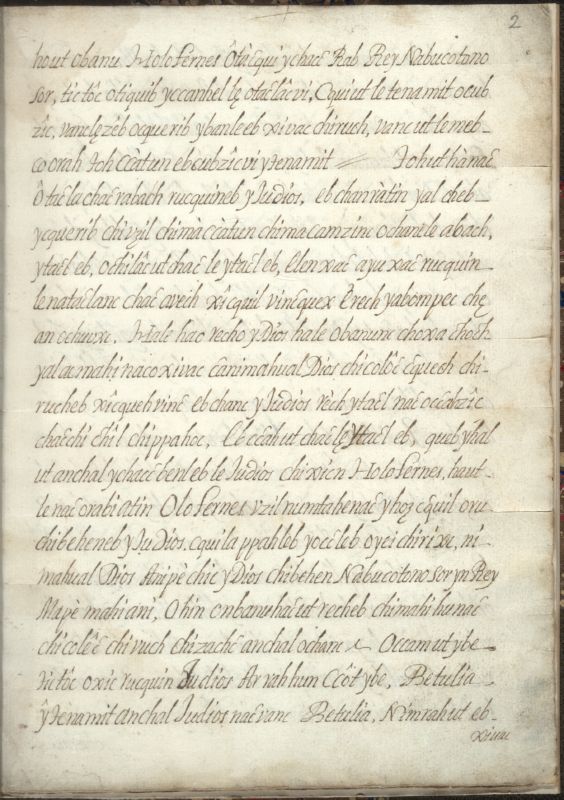 2
hout obanu Holofernes Ôtàcqui ychac Rab Rey Nabucotono
sor, tictôc otiquib yccanhel lȩ otaclâcvi, Cqui ut le tenamit ocub
zîc, vanclȩzéb ocquerib ybanleeb xivac chiruch, vanc ut lemeb-
co orah Joh Ccàtun eb cubzîc vi ytenamit Johut hànac
Ôtacla chac rabach rucquineb y Judios, eb chanràtin yal cheb
ycquerib chi vzil chimà ccàtun chima camzinc ochanle abach,
ytacl eb, ochilâc ut chac le ytacl eb, Elen xac ayu xac rucquin
le nataclanc chac avech xîcquil vincquex Erech yabompec chȩ
an ochuinc. Hale hao recho y Dios hale obanunc choxa choch
yal ac mahi naco xivac canimahual Dios chicolôc cquech chi-
rucheb xîcqueh vinc eb chanc y Judios rêch ytacl nac occàhzîc
chacchi chîl chippahoc, Ccah ut chaclȩ ytacl eb, queb yhal
ut anchal ychacc benleb le Judios chixicn Holofernes, haut
le nac orabi atin Olofernes vzil numtahenac yhoȩ cquil oru
chibeheneb y Judios, cquila ppahlob yocicleb oyci chirixc, ni
mahual Dios Anipè chic y Dios chibehen Nabucotonosor yn Rey
Mapè mahiani, Ohin cnbanuhac ut recheb chimahi hunac
chicolêc chiruch chizachc anchal ochanc Occam ut ybe
tictôc oxic rucquin Judios Arvabhum Ccôt ybe, Betulia
y tenamit anchal Judios nac vanc Betulia, Nimrah ut eb-
xivac